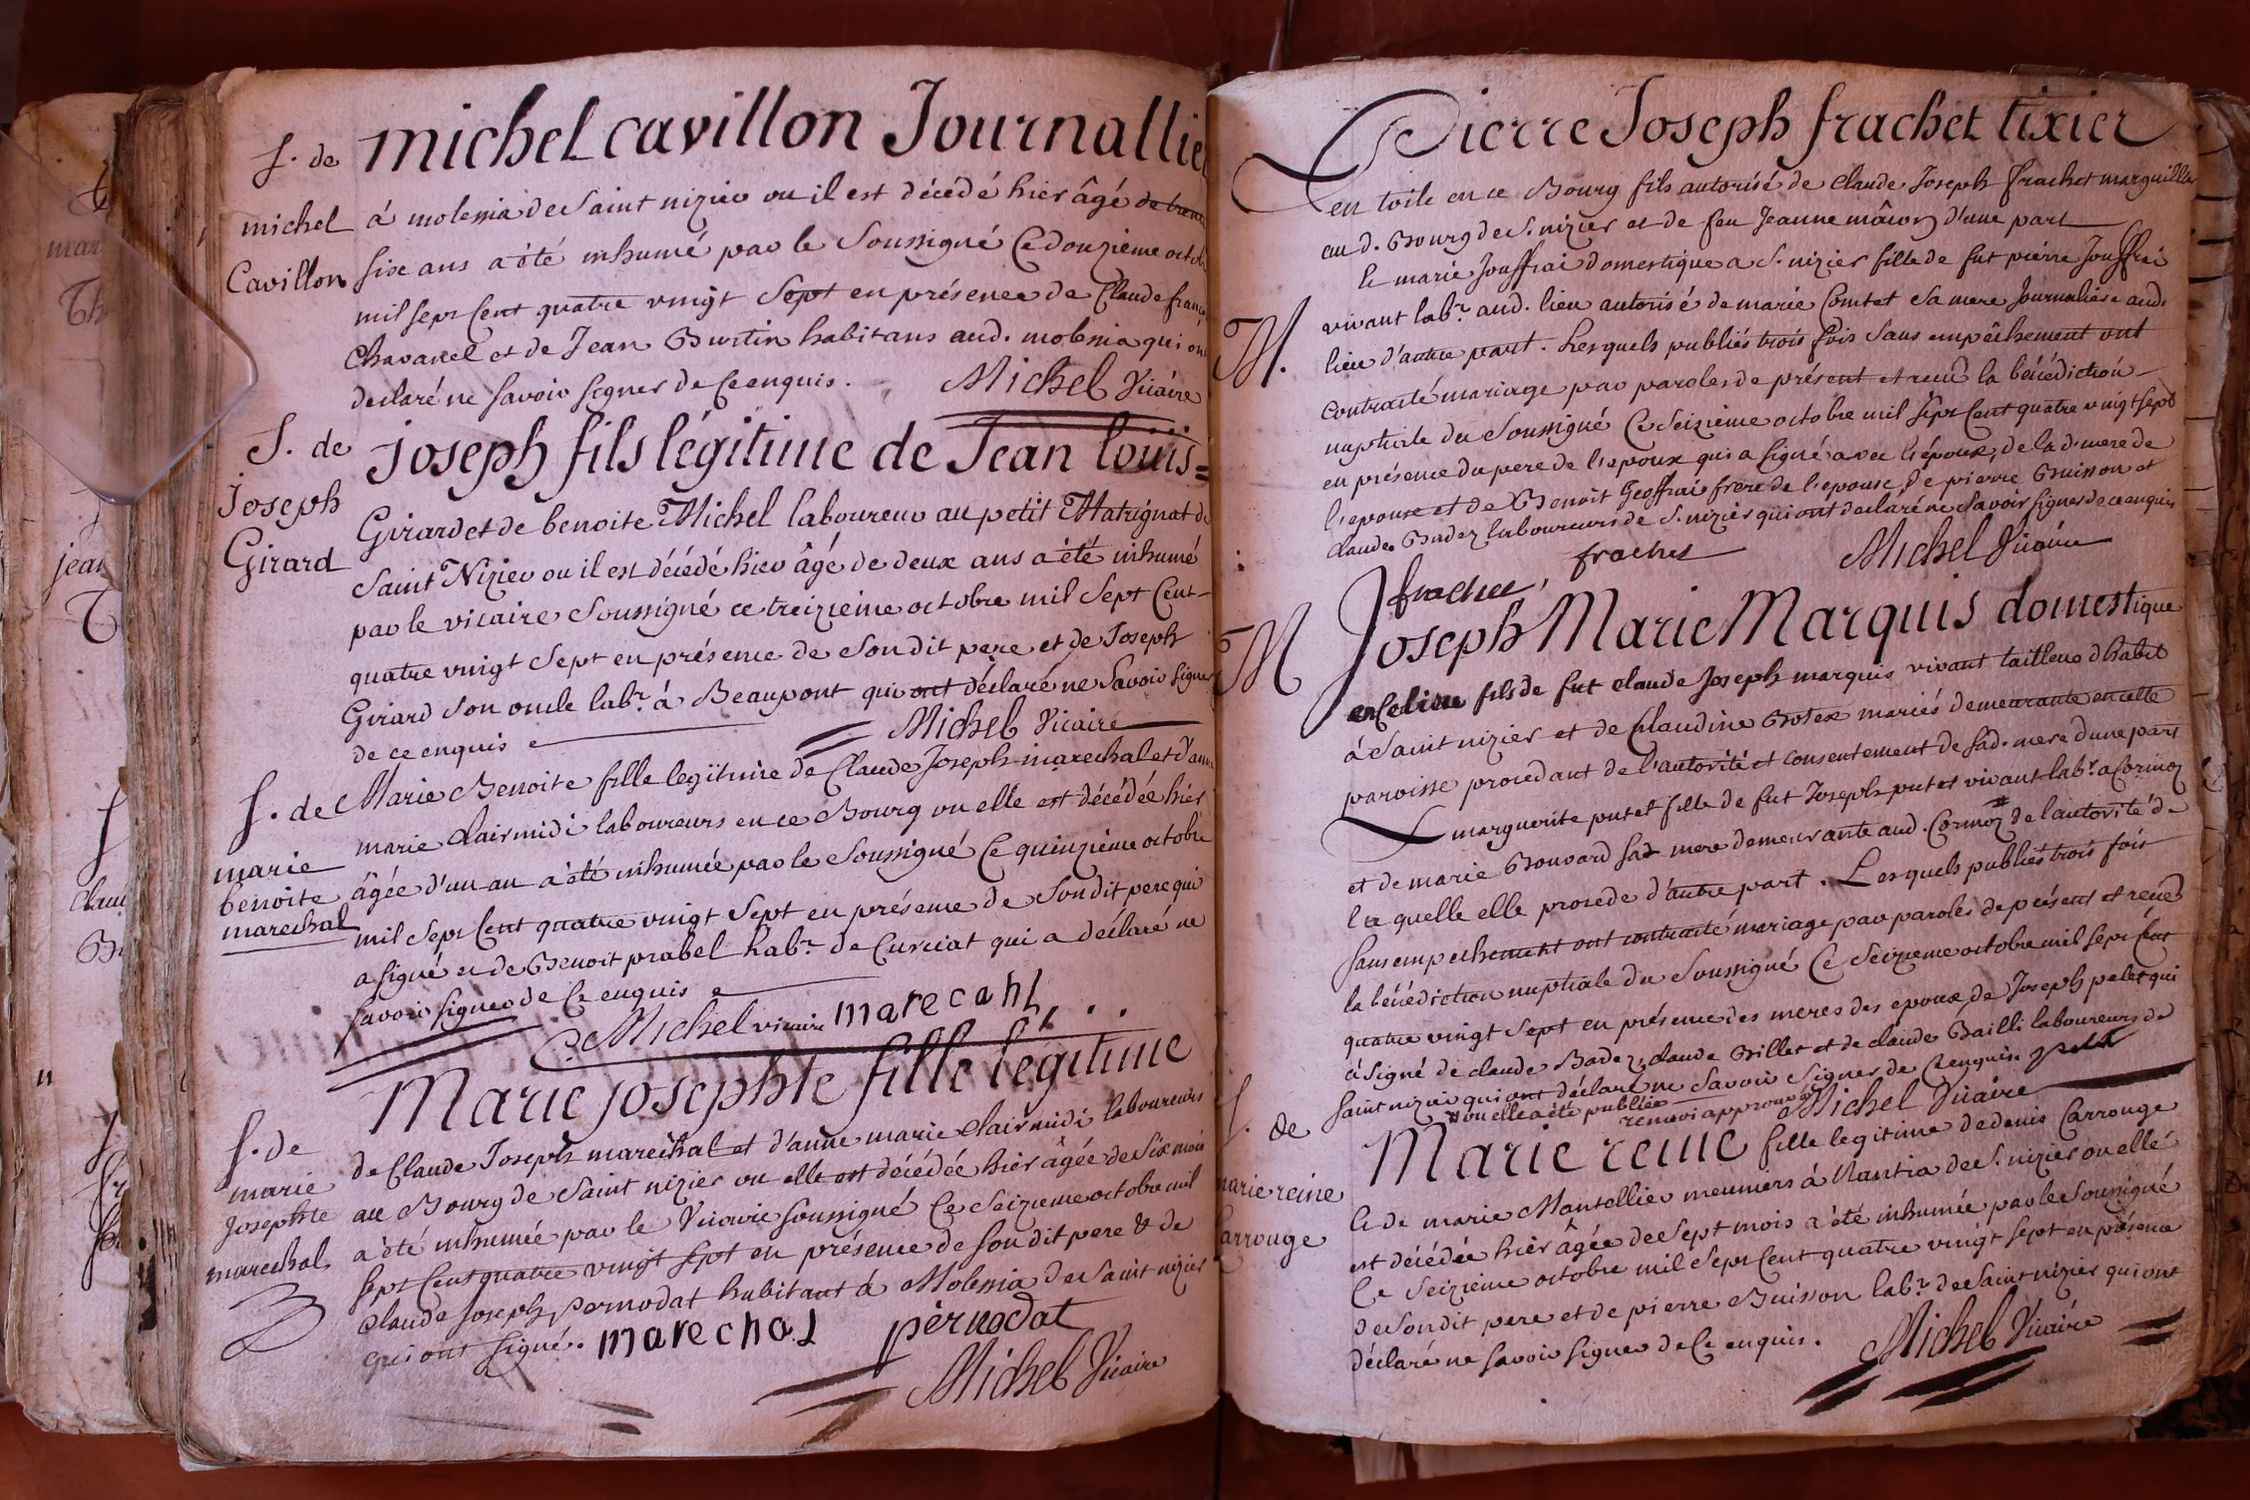 S. de
michel
Cavillon
michel cavillon Journallier
á molenia de Saint nizier ou il est décédé hier âgé de trente
six ans a été inhumé par le Soussigné Ce douzième octobre
mil sept Cent quatre vingt Sept en présence de Claude françois
Chavanel et de Jean Burtin habitans aud. molenia qui ont
declaré ne savoir signer de Ce enquis.
Michel Vicaire
S. de
joseph
Girard
joseph fils légitime de Jean louis=
Girard et de benoite Michel laboureur au petit Matrignat de
Saint Nizier ou il est décédé hier âgé de deux ans a été inhumé
par le vicaire Soussigné ce treizieme octobre mil Sept Cent
quatre vingt Sept en présence de Son dit pere et de Joseph
Girard Son oncle labr. á Beaupont qui ont déclaré ne Savoir signer
de ce enquis
Michel Vicaire
S. de
marie
benoite
marechal
Marie Benoite fille legitime de Claude Joseph marechal et d'anne
marie Clairmidi laboureurs en ce Bourg ou elle est décédée hier
âgée d'un an a été inhumée par le Soussigné Ce quinzième octobre
mil Sept Cent quatre vingt Sept en présence de Son dit pere qui
a signé et de Benoit prabel habr. de Curciat qui a déclaré ne
savoir signer de Ce enquis
Michel vicaire marecahl
S. de
marie
josephte
marechal
Marie josephte fille legitime
de Claude Joseph marechal et d'anne marie Clairmidi laboureurs
au Bourg de Saint nizier ou elle est décédée hier âgée de Six mois
a été inhumée par le Vicaire soussigné Ce Seizieme octobre mil
Sept Cent quatre vingt Sept en présence de Son dit pere & de
Claude Joseph pernodat habitant á Molenia de Saint nizier
qui ont signé. marechal pernodat
Michel Vicaire
M.
Pierre Joseph frachet tixier
en toile en ce Bourg fils autorisé de Claude Joseph frachet marguillier
au d. Bourg de S. nizier et de feu Jeanne mâcon d'une part
& marie Jouffrai domestique a S. nizier fille de fut pierre Jouffrai
vivant labr. aud. lieu autorisé de marie Comtet Sa mere Journaliere aud.
lieu d'autre part. Lesquels publiés trois fois Sans empêchement ont
Contracté mariage par paroles de présent et reçu la bénédiction
nuptiale du Soussigné Ce Seizieme octobre mil Sept Cent quatre vingt Sept
en présence du pere de l'epoux qui a signé avec l'époux, de lad. mere de
l'epouse et de Benoit Geoffrai frere de l'epouse de pierre Buisson et
claude Badez laboureurs de S. nizier qui ont declaré ne Savoir signer de ce enquis
frachet frachet Michel Vicaire
M
Joseph Marie Marquis domestique
fils de fut Claude Joseph marquis vivant tailleur d'habit
á Saint nizier et de Claudine Botex mariés demeurante en cette
paroisse procedant de l'autorité et consentement de sad. mere d'une part
& marguerite putet fille de fut Joseph putet vivant labr. a Cormoz
et de marie Bouvard sa mere demeurante aud. Cormoz # de l'autorité de
la quelle elle procede d'autre part. Lesquels publiés trois fois
Sans empechement ont contracté mariage par paroles de présent et recu
la bénédiction nuptiale du Soussigné Ce Seizieme octobre mil Sept Cent
quatre vingt Sept en présence des meres des epoux de Joseph pelet qui
á Signé de claude Badez, claude Billet et de claude Bailli laboureurs de
Saint nizier qui ont déclaré ne Savoir Signer de Ce enquis.
# ou elle a été publiée renvoi approuvé Michel Vicaire
S. de
marie reine
Carrouge
Marie reine fille legitime de denis Carrouge
& de marie Mantollier meuniers á Nantia de S. nizier ou elle
est décédée hier âgée de Sept mois a été inhumée par le Soussigné
Ce Seizième octobre mil Sept Cent quatre vingt Sept en présence
de Son dit pere et de pierre Buisson labr. de Saint nizier qui ont
déclaré ne savoir signer de Ce enquis.
Michel Vicaire